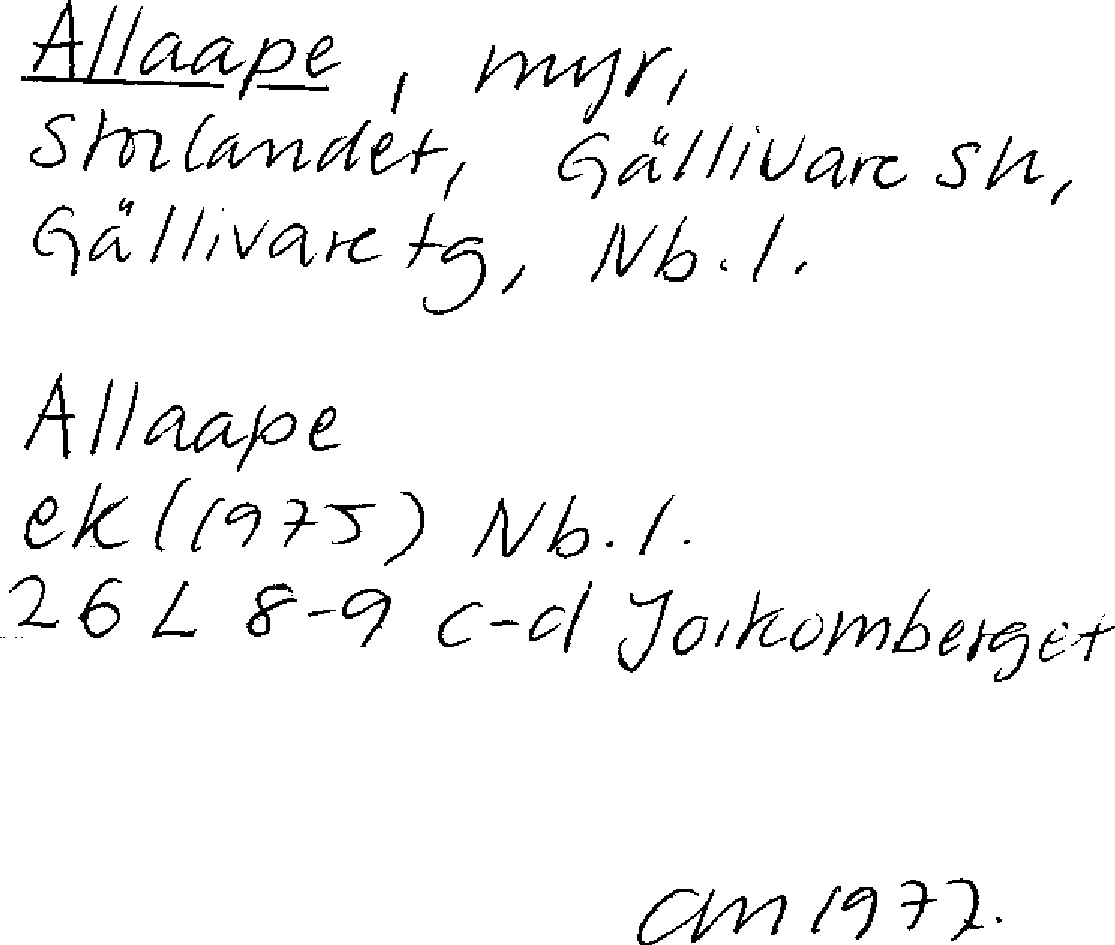 Allaape, myr,
Storlandet, Gällivare sn,
Gällivare tg, Nb. l.
Allaape
ek (1975) Nb. l.
26 L 8-9 c-d Joikomberget
am 1977.